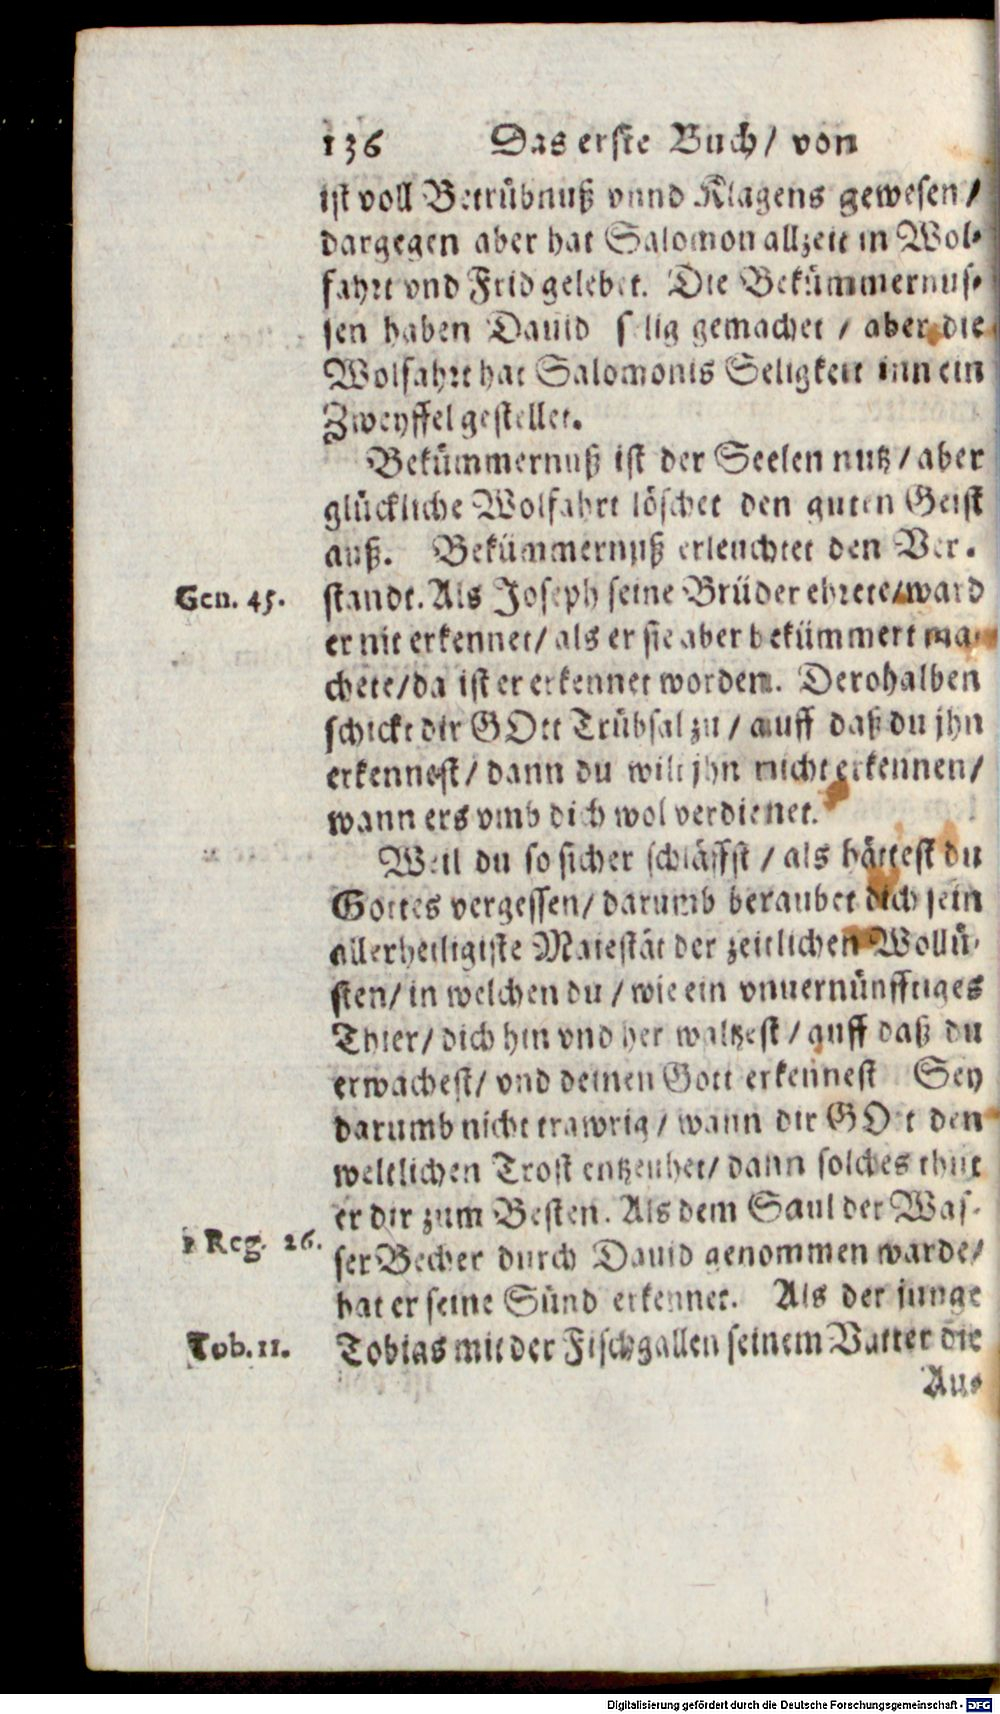 136 Das erste Buch/ von
ist voll Betrübnuß vnnd Klagens gewesen/
dargegen aber hat Salomon allzeit in Wol-
fahrt vnd Frid gelebet. Die Bekümmernus-
sen haben Dauid s lig gemachet / aber die
Wolfahrt hat Salomonis Seligkeit inn ein
Zweyffel gestellet.
Bekümmernuß ist der Seelen nutz/ aber
glückliche Wolfahrt löschet den guten Geist
auß. Bekümmernuß erleuchtet den Ver-
Gen. 45. standt. Als Joseph seine Brüder ehrete/ ward
er nit erkennet/ als er sie aber bekümmert ma-
chete/ da ist er erkennet worden. Derohalben
schickt dir GOtt Trübsal zu / auff daß du jhn
erkennest/ dann du wilt jhn nicht erkennen/
wann ers vmb dich wol verdienet.
Weil du so sicher schläffst / als hättest du
Gottes vergessen/ darumb beraubet dich sein
allerheiligiste Maiestät der zeitlichen Wollü-
sten/ in welchen du / wie ein vnuernünfftiges
Thier/ dich hin vnd her waltzest / auff daß du
erwachest/ vnd deinen Gott erkennest Sey
darumb nicht trawrig / wann dir GOtt den
weltlichen Trost entzeuhet/ dann solches thut
er dir zum Besten. Als dem Saul der Was-
1 Reg. 26. ser Becher durch Dauid genommen warde/
hat er seine Sünd erkennet. Als der junge
Tob. 11. Tobias mit der Fischgallen seinem Vatter die
Au-
Digitalisierung gefördert durch die Deutsche Forschungsgemeinschaft - DFG